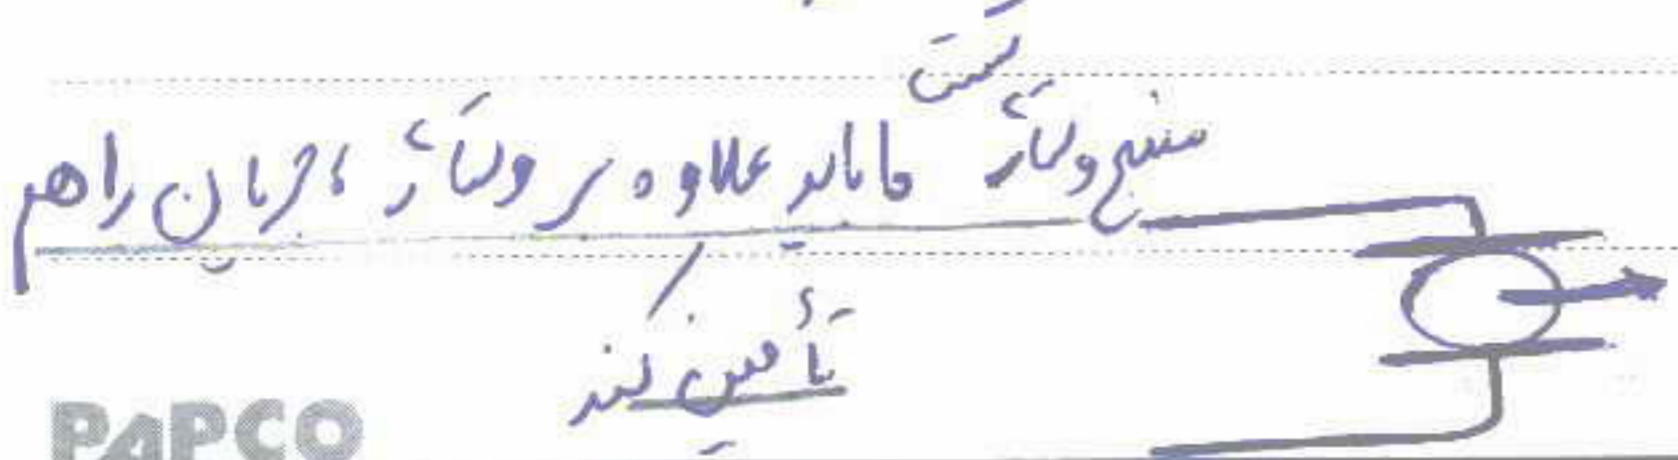 تست
منبع ولتاژ ما باید علاوه بر ولتاژ ، جریان را هم
تأمین کند
PAPCO